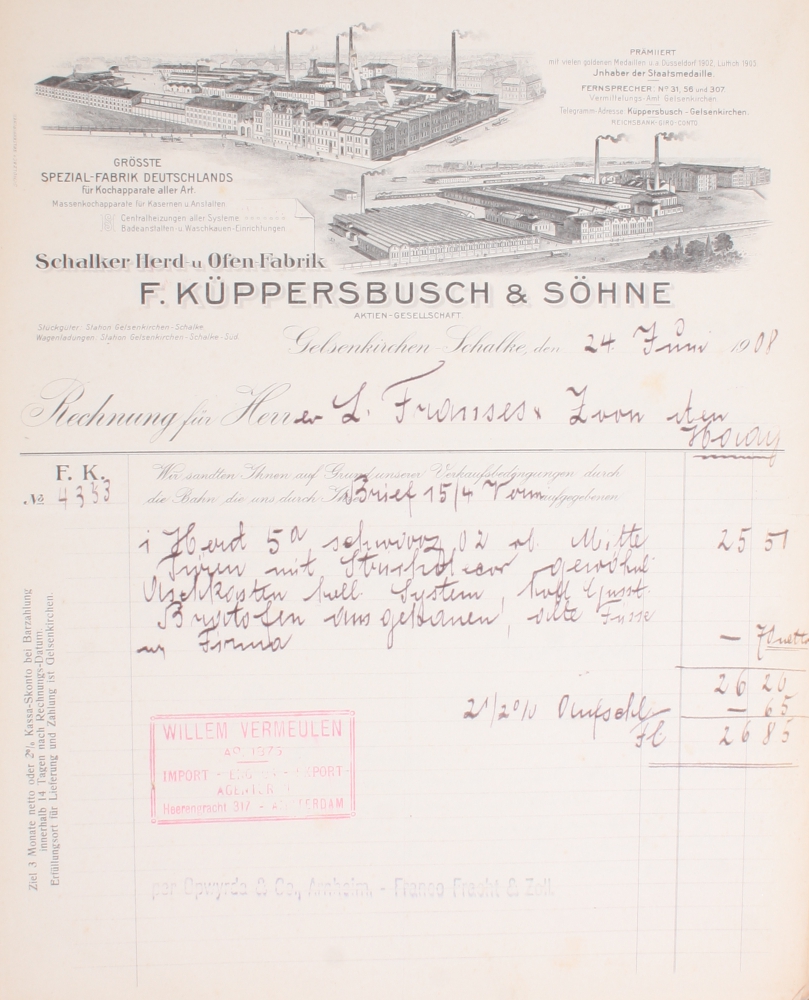 PRÄMIIERT
mit vielen goldenen Medaillen u.a. Düsseldorf 1902, Lüttich 1905.
Inhaber der Staatsmedaille.
FERNSPRECHER: Nº 31, 56 und 307.
Vermittelungs-Amt Gelsenkirchen.
Telegramm-Adresse: Küppersbusch-Gelsenkirchen.
REICHSBANK-GIRO-CONTO
GRÖSSTE
SPEZIAL-FABRIK DEUTSCHLANDS
für Kochapparate aller Art.
Massenkochapparate für Kasernen u. Anstalten
Centralheizungen aller Systeme
Badeanstalten- u. Waschkauen-Einrichtungen.
Schalker Herd- u. Ofen-Fabrik
F. KÜPPERSBUSCH & SÖHNE
AKTIEN-GESELLSCHAFT
Stückgüter: Station Gelsenkirchen-Schalke.
Wagenladungen: Station Gelsenkirchen-Schalke-Süd.
Gelsenkirchen-Schalke, den 24. Juni 1908
Rechnung für Herren L. Franses & Zoon den
Haag
F. K.
№ 4353
Wir sandten Ihnen auf Grund unserer Verkaufsbedingungen durch
die Bahn die uns durch Brief 15/4 aufgegebenen
1 Herd 5a schwarz 02 Mitte 25 51
Türen mit
Aschkasten System,
Bratofen alte Füsse
Firma — 70 netto
26 20
2 1/2 % Aufschl — 65
Fl 26 85
WILLEM VERMEULEN
AO. 1875
IMPORT - EXPORT
AGENTUR
Heerengracht 317 - AMSTERDAM
per Opwyrda & Co., Arnheim, - Franco Fracht & Zoll.
Ziel 3 Monate netto oder 2% Kassa-Skonto bei Barzahlung
innerhalb 14 Tagen nach Rechnungs-Datum.
Erfüllungsort für Lieferung und Zahlung ist Gelsenkirchen.